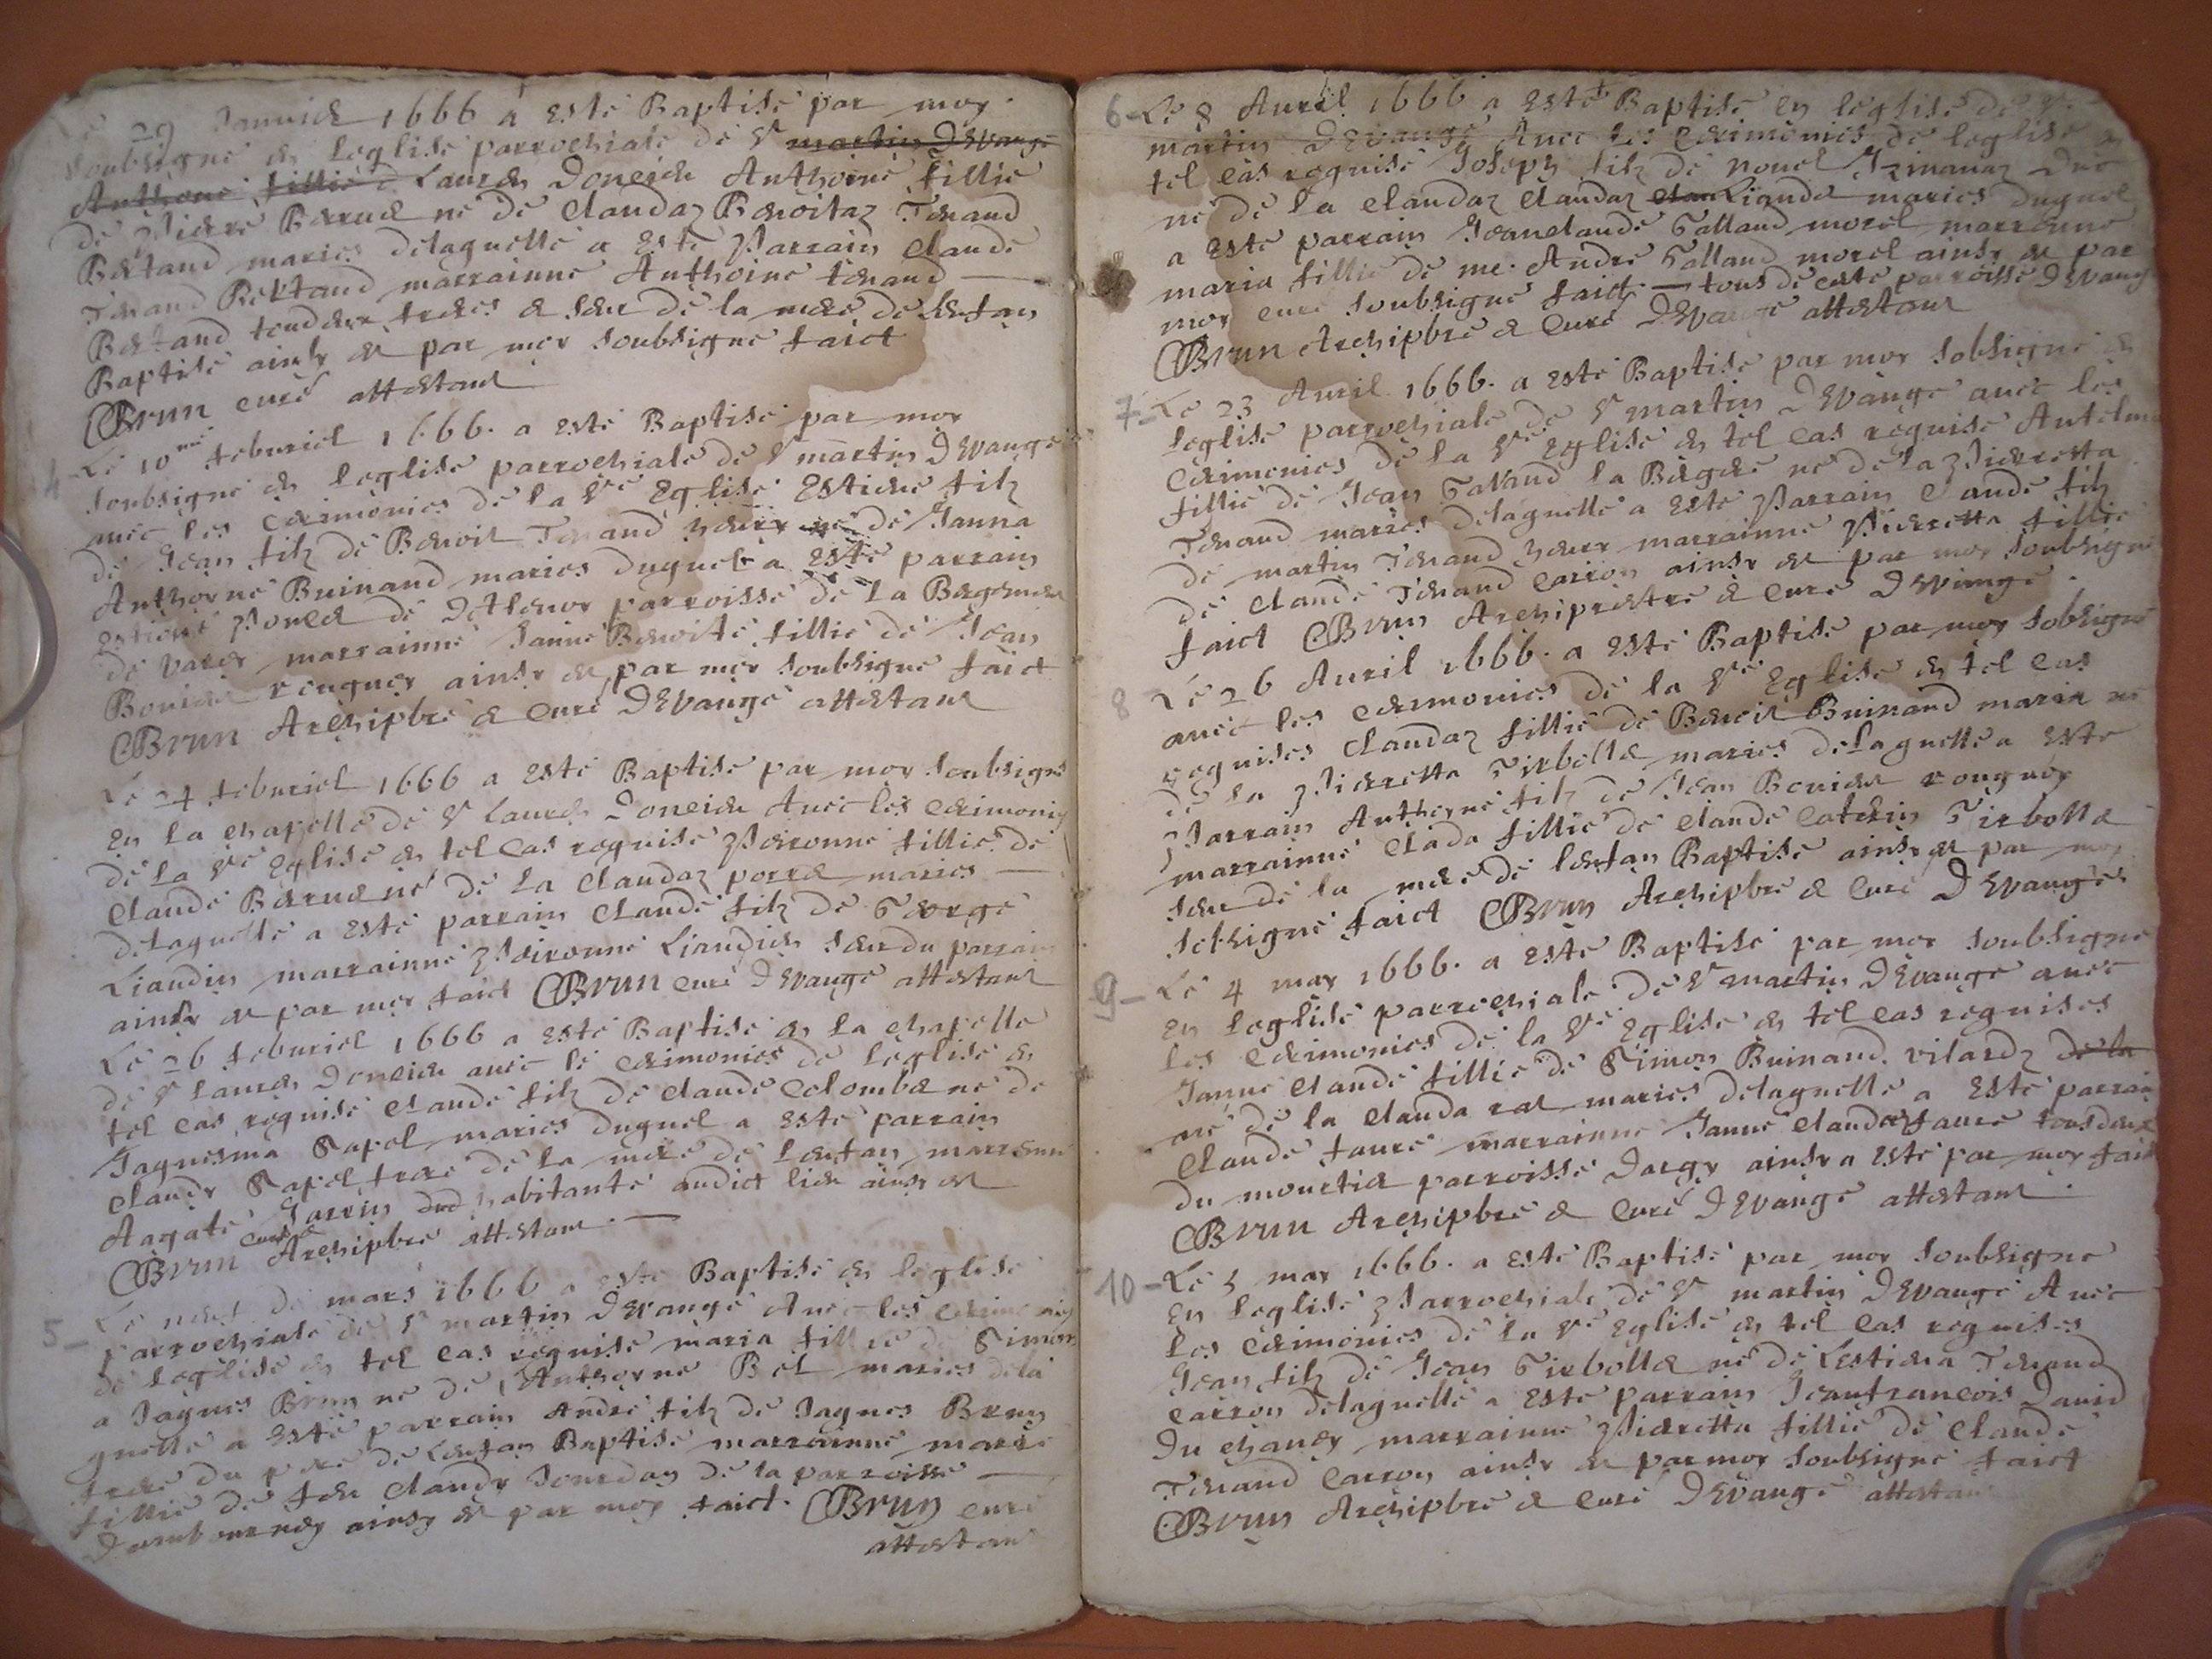 29 Januier 1666 a esté Baptisé par moy
soubsigne en leglise parrochiale de St martin Devange
Anthone fillie d Lauren Doncieu Anthoine fillie
de Pierre Berrue ne de Claudaz Benoitaz Tenand
Bertand maries delaquelle a esté Parrain Claude
Tenand Bertand marrainne Anthoine tenand
Bertand touderr freres & seur de la mere de lenfan
Baptisé ainsy er par moy soubsigne faict
Brun curé attestant
4 - Le 10me feburier 1666. a esté Baptisé par moy
soubsigne en leglise parrochiale de St martin Devange
auec les cerimonies de la Ste Eglise Estiene filz
de Jean filz de Benoit Tenand de Janna
Anthoyne Buinand maries duquel a esté parrain
estiene de parroisse de la
de marrainne Janne Benoite fillie de Jean
Bouier rougney ainsy er par moy soubsigne faict
Brun Archipbre & Curé Devange attestant
Le 24 feburier 1666 a esté Baptisé par moy soubsigné
en la chapelle de St Lauren Doncieu Auec les cerimonies
de la Ste Eglise en tel cas requise Peironne fillie de
Claude Berrue né de la Claudaz porre maries
delaquelle a esté parrain Claude filz de George
Liaudin marrainne Peironne Liaudin seur du parrain
ainsy er par moy faict Brun curé Devange attestant
Le 26 feburier 1666 a esté Baptisé en la chapelle
de St Lauren Doncieu auec le cerimonies de leglise en
tel cas requise Claude filz de Claude Colombe né de
Jaquesma Papel maries duquel a esté parrain
Claudy Papel frere de la mere de lenfan marrenne
Aagate habitante audict lieu ainsy er
Brun curé & Archipbre attestant
5 - Le de mars 1666 a esté Baptisé en leglise
parrochiale de St martin Devange Auec les cerimonies
de leglise en tel cas requise maria fillie de Simon
a Jaques Brun ne de Anthoyne Bel maries dela
quelle a esté parrain André filz de Jaques Brun
frere du pere de lenfan Baptise marrainne marie
fillie de feu Claudy Jourdan de la parroisse
ainsy er par moy faict. Brun curé
attestant
6 - Le 8 Auril 1666 a esté Baptisé en leglise de St
martin Devange Auec les cerimonies de leglise en
tel cas requise Joseph filz de nouel
ne de la Claudaz Claudaz Liaude maries duquel
a esté parrain Jeanclaude Galland morel marrenne
maria fillie de me. André Galland morel ainsy er par
moy curé soubsigne faict - tous de ceste parroisse Devange
Brun Archipbre & Curé Devange attestant
7 - Le 23 Auril. 1666. a esté Baptisé par moy sobsigne en
leglise parrochiale de St martin Devange auec les
cerimonies de la Ste Eglise en tel cas requise Antelme
fillie de Jean Gavand la Bergere ne de la Pierretta
Tenand maries delaquelle a esté Parrain Claude filz
de martin Tenand marrainne Pierretta fillie
de Claude Tenand Carron ainsy er par moy soubsigne
faict Brun Archiprestre & Curé Devange.
8 Le 26 Auril 1666. a esté Baptisé par moy sobsigné
auec les cerimonies de la Ste Eglise en tel cas
requises Claudaz fillie de Benoit Buinand maria né
de la Pierretta Girbolle maries delaquelle a esté
Parrain Anthoyne filz de Jean Bouier rougney
marrainne Clada fillie de Claude Caterin Girbolle
seur de la mere de lenfan Baptisé ainsy er par moy
sobsigné faict Brun Archipbre & Curé Devange
9 - Le 4 may 1666. a esté Baptisé par moy soubsigne
en leglise parrochiale de St martin Devange auec
les cerimonies de la Ste Eglise en tel cas requises
Janne Claude fillie de Simon Buinand vilardz de la
né de la Clauda rat maries delaquelle a esté parrain
Claude faure marrainne Janne Claude faure tousdeux
du mouetier parroisse Dargy ainsy a esté par moy faict
Brun Archipbre & Curé Devange attestant.
10 - Le 5 may 1666. a esté Baptisé par moy soubsigne
en leglise Parrochiale de St martin Devange Auec
les cerimonies de la Ste Eglise en tel cas requises
Jean filz de Jean Girbolle né de Lestiena Tenand
Carron delaquelle a esté parrain Jeanfrancois David
du chaney marrainne Pierretta fillie de Claude
Tenand Carron ainsy er par moy soubsigné faict
Brun Archipbre & Curé Devange attestant